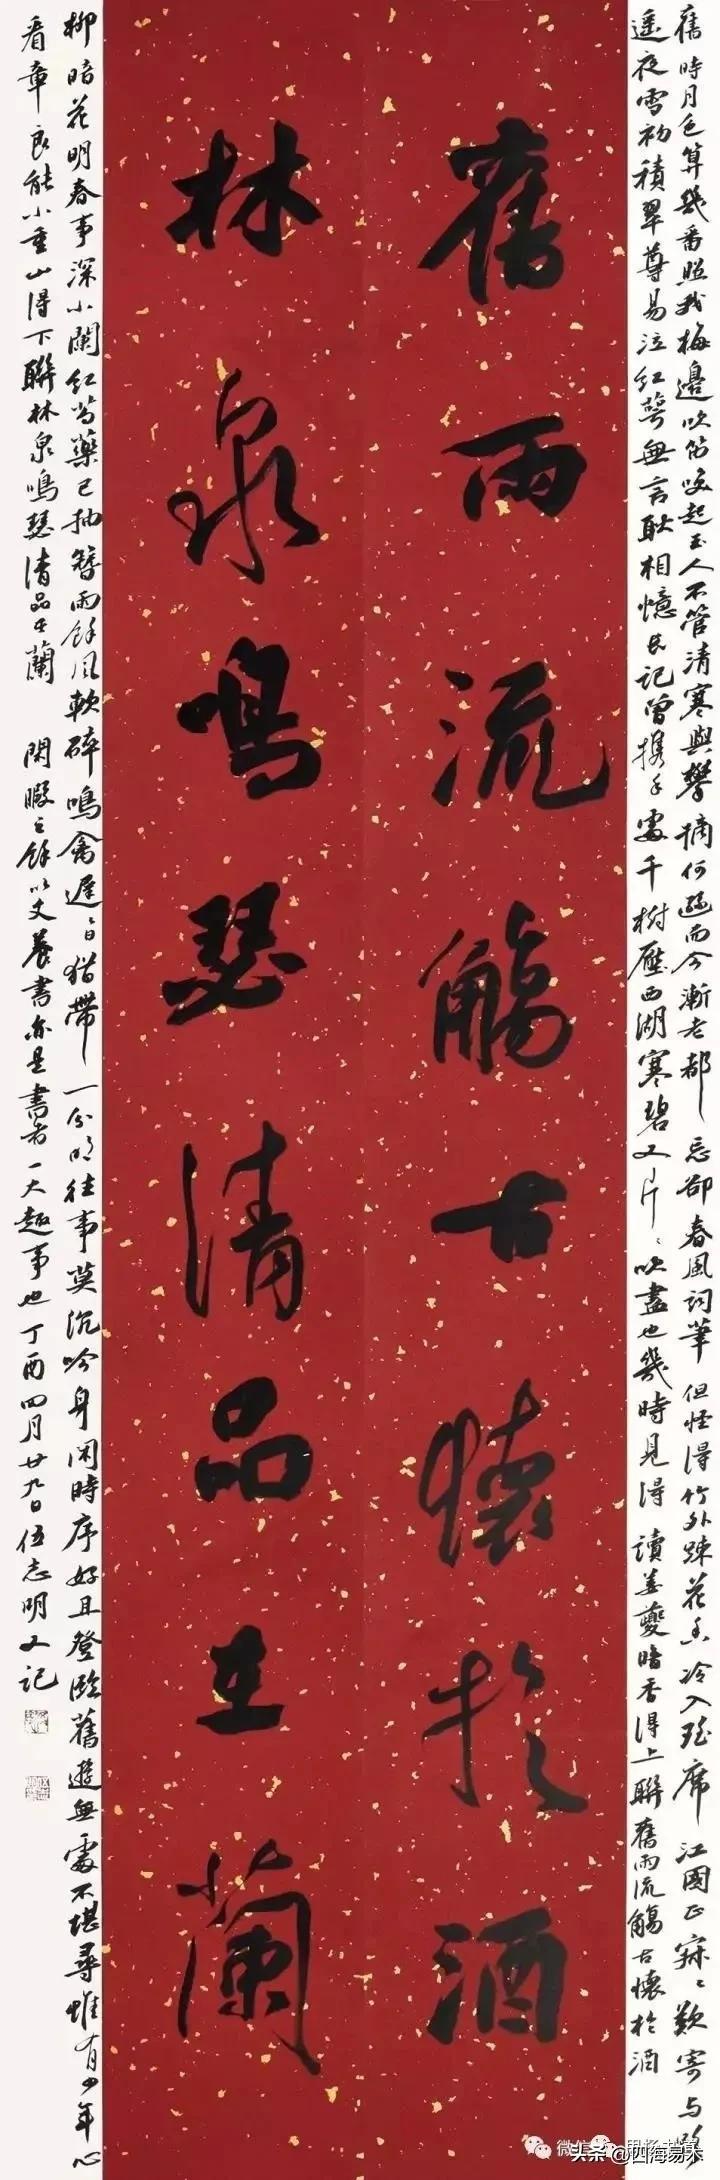 舊時月色算幾番照我梅邊吹笛喚起玉人不管清寒與攀摘何遜而今漸老都忘卻春風詞筆 但怪得竹外疎花香冷入瑤席 江國正寂〻歎寄與路
遙夜雪初積翠尊易泣紅萼無言耿相憶長記曾攜手處千樹壓西湖寒碧又片〻吹盡也幾時見得 讀姜夔暗香得上聯舊雨流觴古懷於酒
舊雨流觴古懷於酒
林泉鳴瑟清品在蘭
柳暗花明春事深小闌紅芍藥已抽簪雨餘風軟碎鳴禽遲〻日猶帶一分陰往事莫沉吟身閑時序好且登臨舊遊無處不堪尋惟有少年心
看章良能小重山得下聯林泉鳴瑟清品在蘭 閑暇之餘以文養書亦是書者一大趣事也丁酉四月廿九日伍志明又記
头条@四海易木